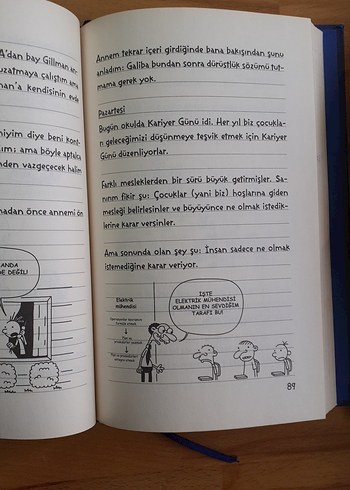 A'dan bay Gillman
uzatmaya çalıştım ama
man'a kendisinin evde
niyim diye beni kont-
ım; ama böyle aptalca
nden vazgeçecek halim
madan önce annemi ön
ANDA
DE DEĞİL!
Annem tekrar içeri girdiğinde bana bakışından şunu
anladım: Galiba bundan sonra dürüstlük sözümü tut-
mama gerek yok.
Pazartesi
Bugün okulda Kariyer Günü idi. Her yıl biz çocukla-
rın geleceğimizi düşünmeye teşvik etmek için Kariyer
Günü düzenliyorlar.
Farklı mesleklerden bir sürü büyük getirmişler. Sa-
nırım fikir şu: Çocuklar (yani biz) hoşlarına giden
mesleği belirlesinler ve büyüyünce ne olmak istedik-
lerine karar versinler.
Ama sonunda olan şey şu: İnsan sadece ne olmak
istemediğine karar veriyor.
Elektrik
mühendisi
İŞTE
ELEKTRİK MÜHENDİSİ
OLMANIN EN SEVDİĞİM
TARAFI BU!
89